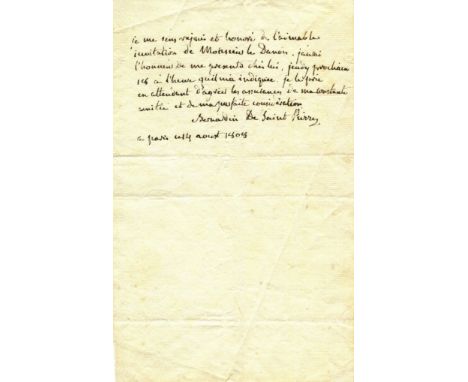 je me sens réjoui et honoré de l'aimable
invitation de Monsieur le Baron. j'aurai
l'honneur de me presenter chez lui, jeudy prochain
à l'heure qu'il m'a indiquée je le prie
en attendant d'agréer les assurances de ma constante
amitié et de ma parfaite consideration
Bernardin De Saint Pierre
a paris ce aoust